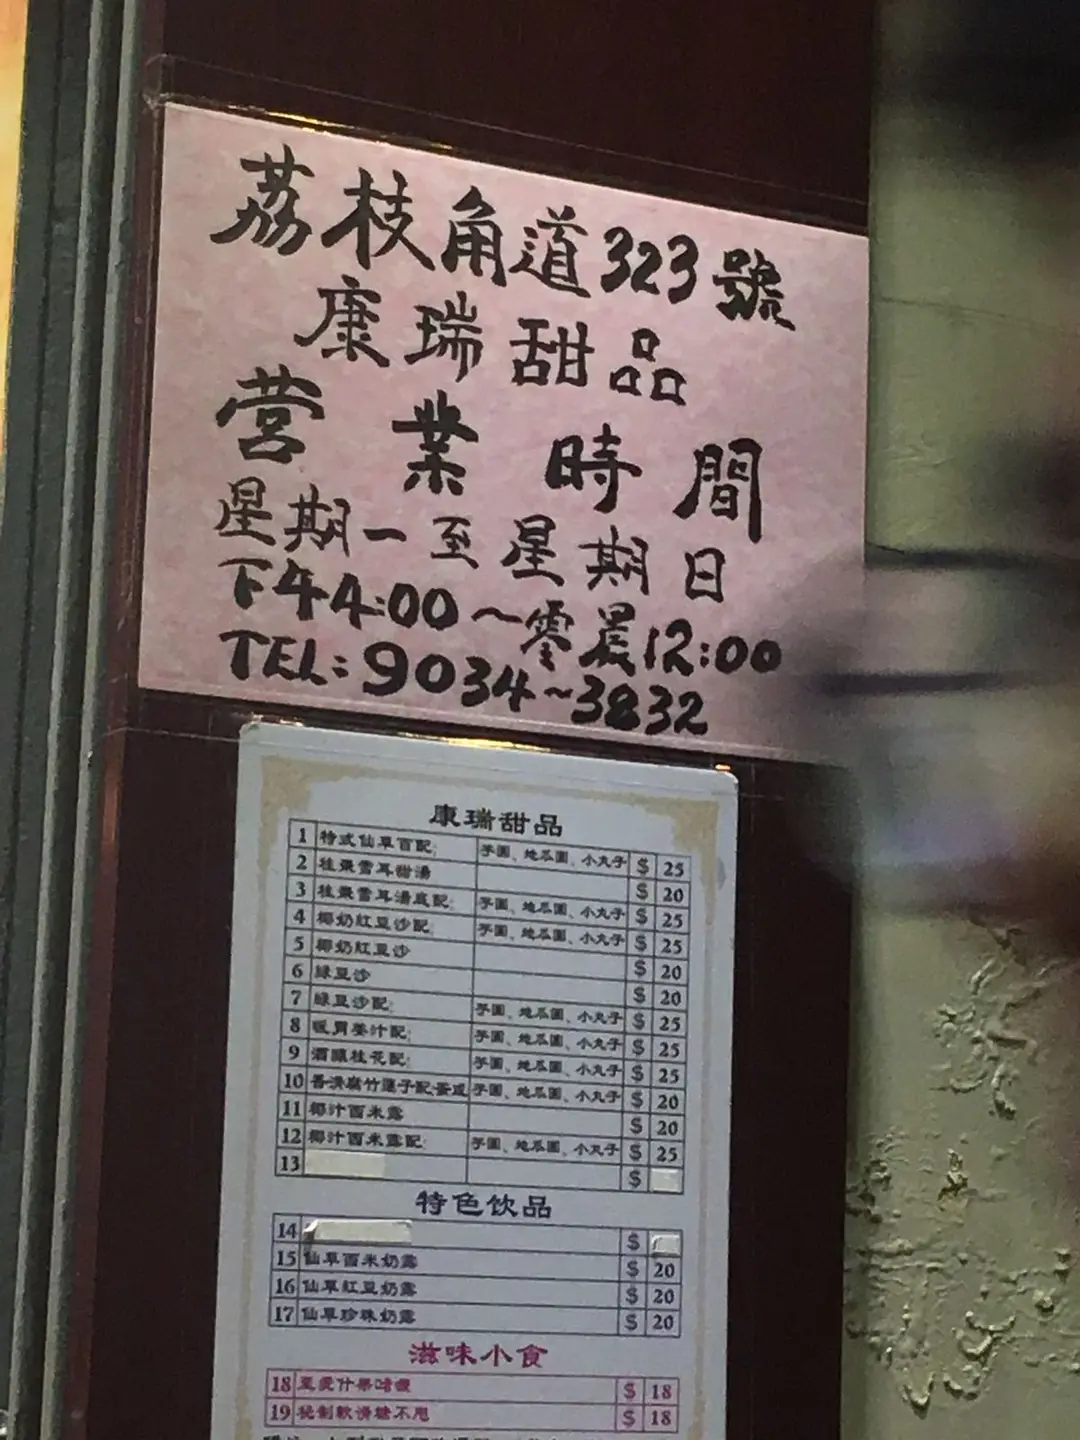 荔枝角道323號
康瑞甜品
营業時間
星期一至星期日
下午4:00～零晨12:00
TEL:9034~3832
康瑞甜品
1 特式仙草百配: 芋圓、地瓜圓、小丸子 $ 25
2 桂棗雪耳甜湯 $ 20
3 桂棗雪耳湯底配: 芋圓、地瓜圓、小丸子 $ 25
4 椰奶紅豆沙配: 芋圓、地瓜圓、小丸子 $ 25
5 椰奶紅豆沙 $ 20
6 綠豆沙 $ 20
7 綠豆沙配: 芋圓、地瓜圓、小丸子 $ 25
8 暖胃姜汁配: 芋圓、地瓜圓、小丸子 $ 25
9 酒釀桂花配: 芋圓、地瓜圓、小丸子 $ 25
10 腐竹 子配 芋圓、地瓜圓、小丸子 $ 20
11 椰汁西米露 $ 20
12 椰汁西米露配: 芋圓、地瓜圓、小丸子 $ 25
13 $
特色饮品
14 $
15 仙草西米奶露 $ 20
16 仙草紅豆奶露 $ 20
17 仙草珍珠奶露 $ 20
滋味小食
18 至愛什果啫喱 $ 18
19 秘制軟滑糖不甩 $ 18